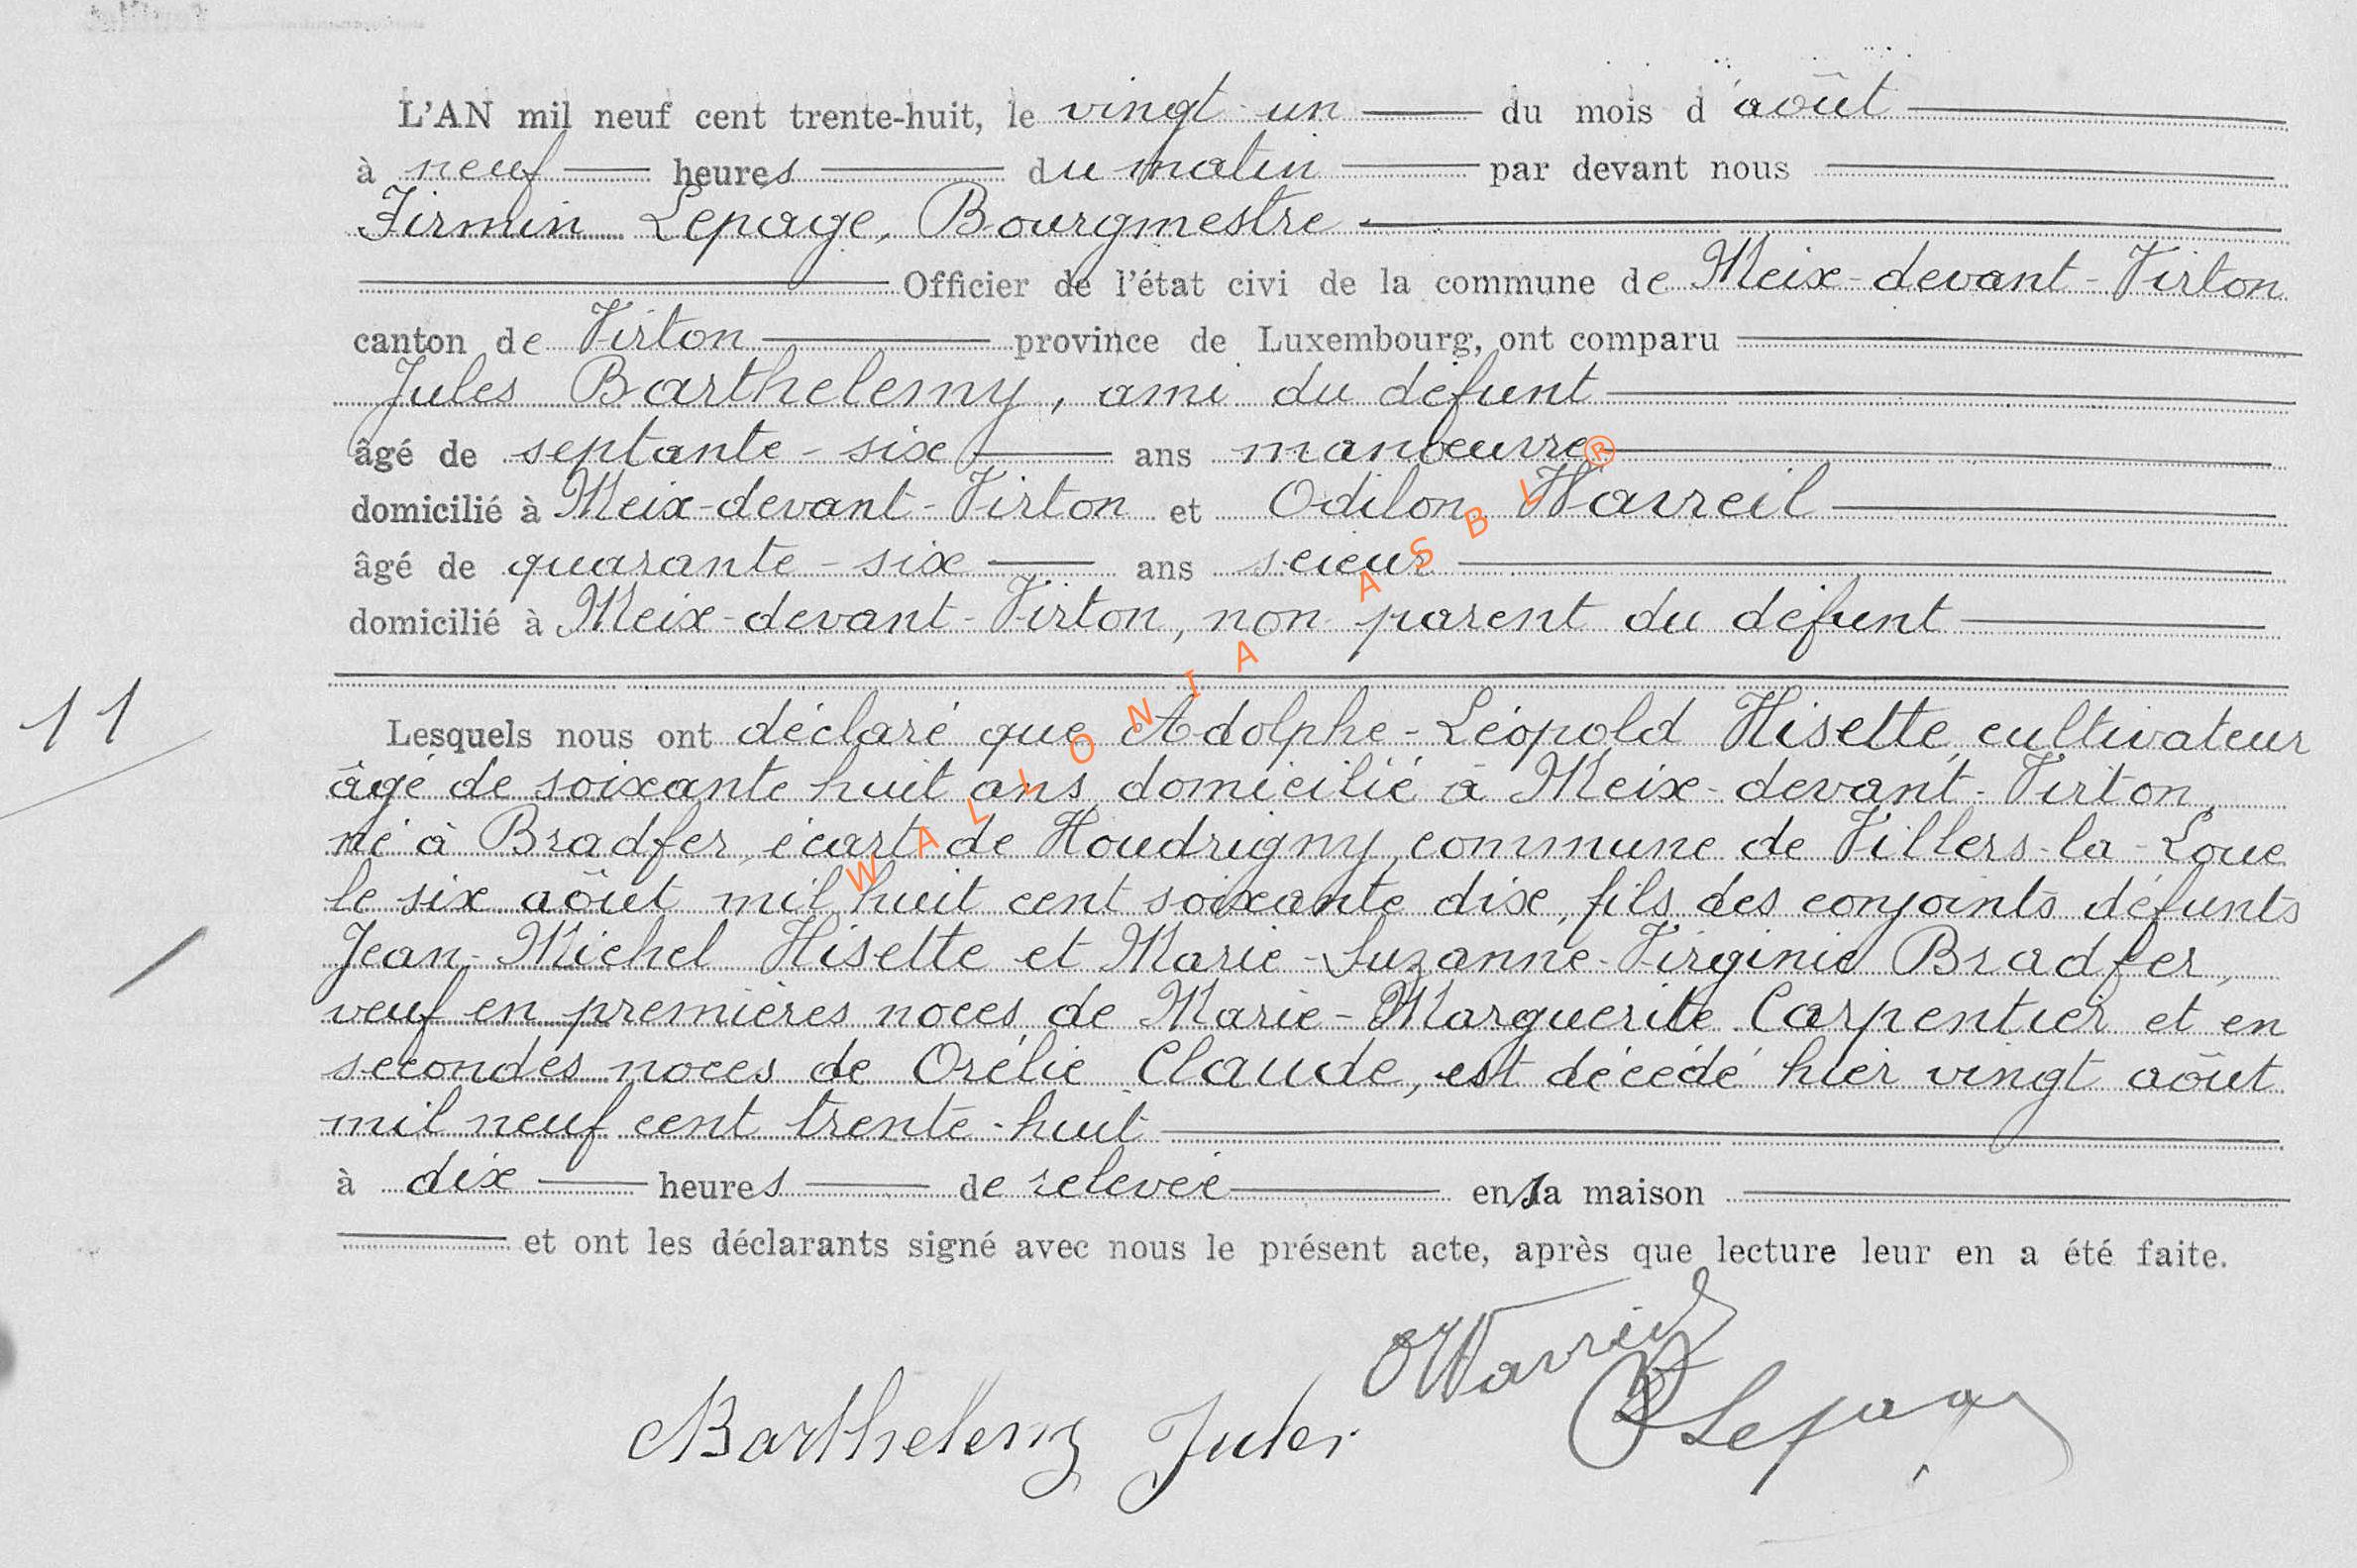 L'AN mil neuf cent trente-huit, le vingt-un du mois d'août
à neuf heures du matin par devant nous
Firmin Lepage, Bourgmestre
Officier de l'état civi de la commune de Meix-devant-Virton
canton de Virton province de Luxembourg, ont comparu
Jules Barthelemy, ami du défunt
âgé de septante-six ans manoeuvre
domicilié à Meix-devant-Virton et Odilon Wavreil
âgé de quarante-six ans scieur
domicilié à Meix-devant-Virton, non parent du défunt
11
Lesquels nous ont déclaré que Adolphe-Léopold Hisette, cultivateur
âgé de soixante huit ans, domicilié à Meix-devant-Virton,
né à Bradfer, écart de Houdrigny, commune de Villers-la-Loue
le six août mil huit cent soixante dix, fils des conjoints défunts
Jean-Michel Hisette et Marie-Suzanne-Virginie Bradfer,
veuf en premières noces de Marie-Marguerite Carpentier et en
secondes noces de Orélie Claude, est décédé hier vingt août
mil neuf cent trente-huit
à dix heures de relevée en sa maison
et ont les déclarants signé avec nous le présent acte, après que lecture leur en a été faite.
Barthelemy Jules
Lepage
WALLONIA ASBL ®